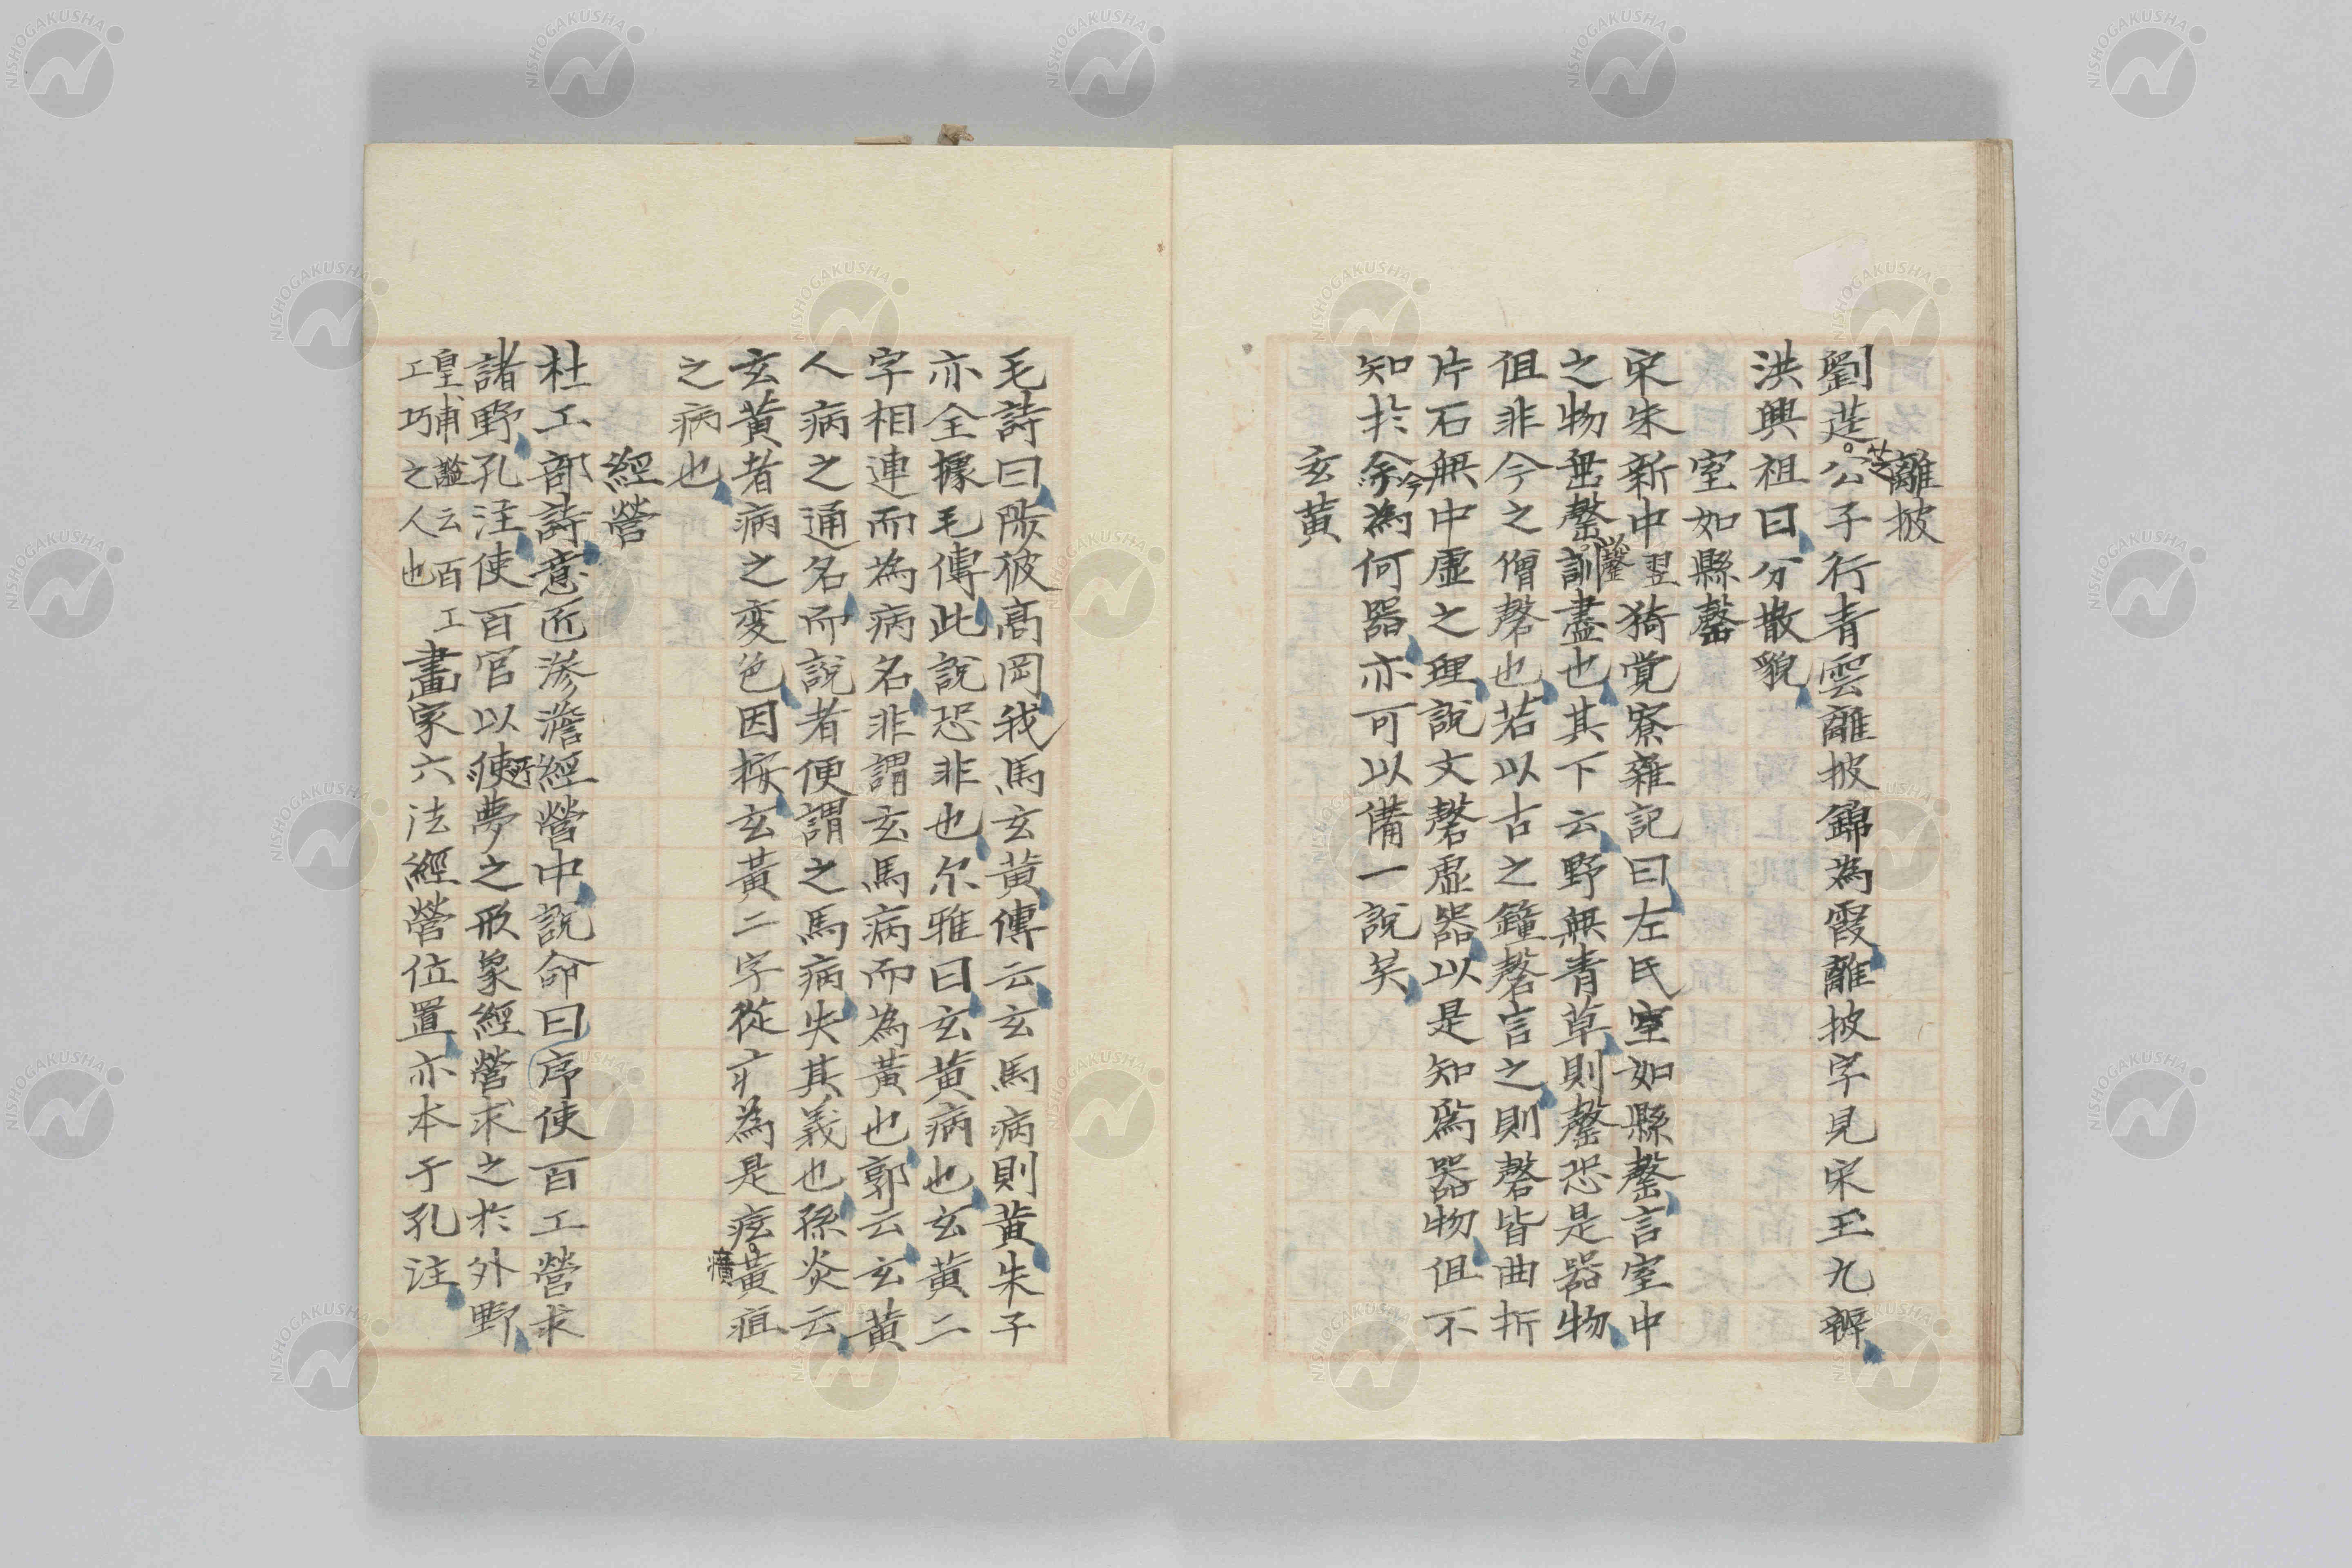 離披
劉莛芝公子行青雲離披錦為霞離披字見宋玉九辨
洪興祖曰分散貌
室如縣罄
宋朱新中翌猗覺寮雜記曰左氏室如縣罄言室中
之物垂罄以罄訓盡也其下云野無青草則罄恐是器物
但非今之僧磬也若以古之鐘磬言之則磬皆曲折
片石無中虛之理說文罄虛器以是知為器物但不
知於今為何器亦可以備一說矣
玄黃
毛詩曰陟彼高岡我馬玄黃傳云玄馬病則黃朱子
亦全據毛傳此說恐非也尔雅曰玄黃病也玄黃二
字相連而為病名非謂玄馬病而為黃也郭云玄黃
人病之通名而說者便謂之馬病失其義也孫炎云
玄黃者病之変色因按玄黃二字從疒為是痃黃癀疽
之病也
經營
杜工部詩意匠滲澹經營中說命曰序使百工營求
諸野孔注使百官以所夢之形象經營求之於外野
皇甫謐云百工
工巧之人也
畫家六法經營位置亦本于孔注
NISHOGAKUSHA